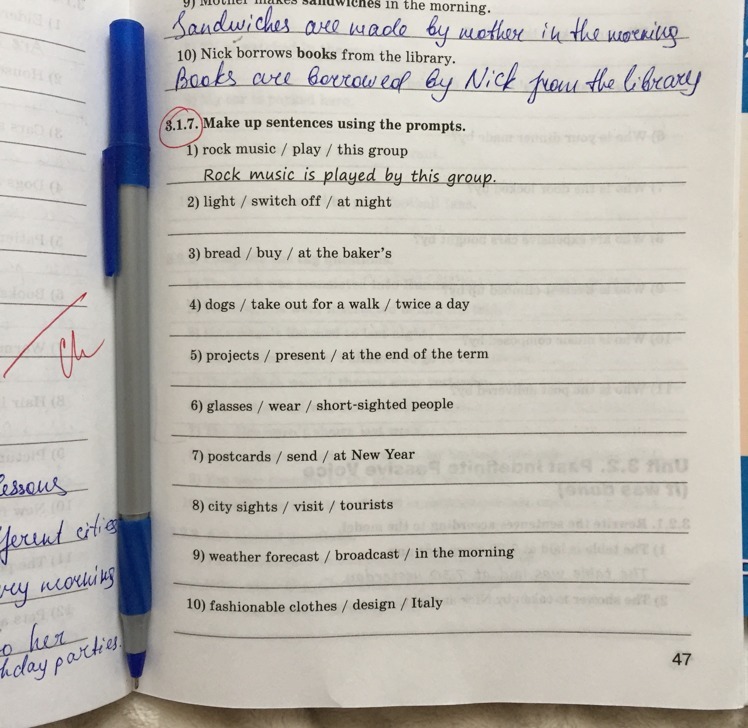 9) Mother makes sandwiches in the morning.
Sandwiches are made by mother in the morning
10) Nick borrows books from the library.
Books are borrowed by Nick from the library
3.1.7. Make up sentences using the prompts.
1) rock music / play / this group
Rock music is played by this group.
2) light / switch off / at night
3) bread / buy / at the baker's
4) dogs / take out for a walk / twice a day
5) projects / present / at the end of the term
6) glasses / wear / short-sighted people
7) postcards / send / at New Year
8) city sights / visit / tourists
9) weather forecast / broadcast / in the morning
10) fashionable clothes / design / Italy
47
lessons
cities
morning
her
parties.